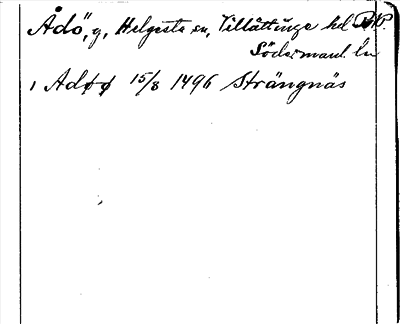 Ådö, g, Helgesta sn, Villåttinge hd
Söderman. län
1 Adøø 15/8 1496 Strängnäs